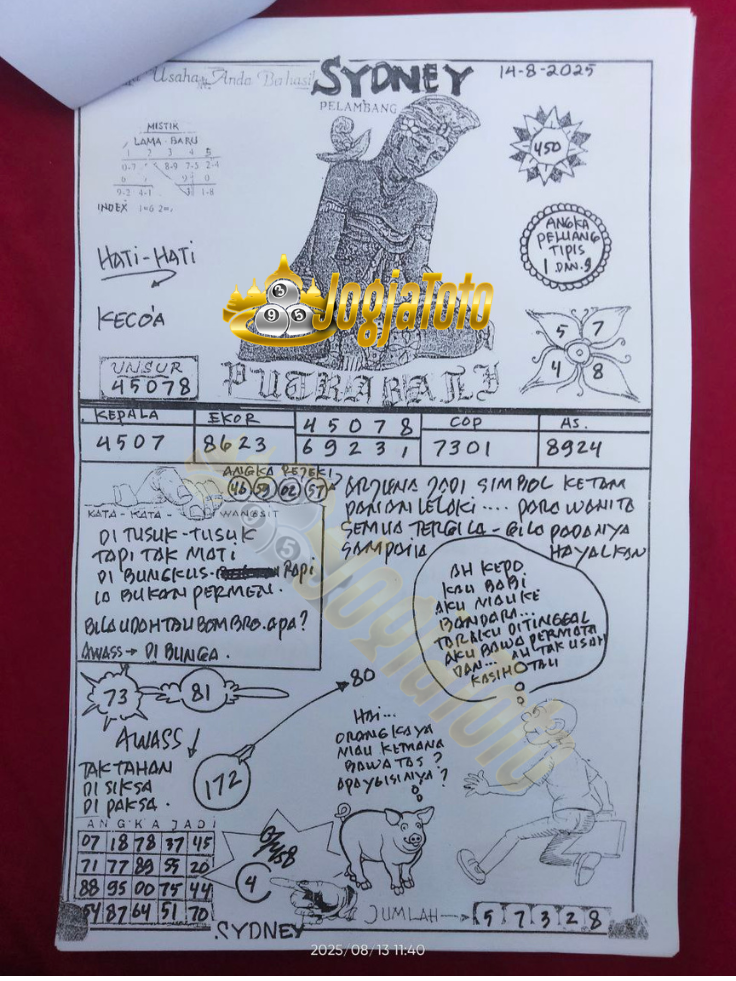 Usaha Anda Berhasil
SYDNEY
14-8-2025
PELAMBANG
MISTIK
LAMA BARU
1 2 3 4 5
0-7 8-9 7-5 2-4
9-2 4-1 1-8
INDEX
450
ANGKA
PELUANG
TIPIS
1 DAN 9
HATI-HATI
KECOA
JogjaToto
5 7
4 8
UNSUR
45078
PUTRA BALI
KEPALA EKOR 45078 COP AS.
4507 8623 69231 7301 8924
ANGKA REJEKI
46 59 02 57
KATA-KATA- WANGSIT
DI TUSUK-TUSUK
TAPI TAK MATI
DI BUNGKUS- TAPI
IA BUKAN PERMEN.
BILA UDAH TAU BOM BRO. APA?
AWASS → DI BUNGA.
ARJUNA JADI SIMBOL KETAM
PANAN LELAKI.... PARA WANITA
SEMUA TERGILA-GILA PADANYA
SAMPAIA HAYALKAN
AH KEPO
KAU BABI
AKU MAU KE
BANDARA...
TARAKU DITINGGAL
AKU BAWA PERMATA
DAN... AH TAK USAH
KASIHOTAU
73 81
80
AWASS
172
TAK TAHAN
DI SIKSA
DI PAKSA.
HAI...
ORANG KAYA
MAU KEMANA
BAWA TAS?
APAYGISINYA?
ANGKA JADI
07 18 78 37 45
71 77 89 55 20
88 95 00 75 44
54 87 64 51 70
4
JUMLAH → 5 7 3 2 8
.SYDNEY
2025/08/13 11:40